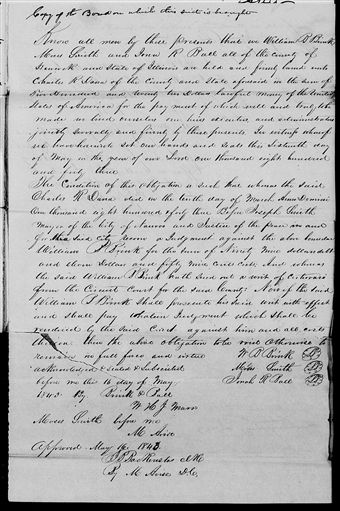 Copy of the Bond on which this suit is brought
Know all men by these presents that we William B Brink
Moses Smith and R Ball all of the county of
Hancock and State of Illinois are held and firmly bound unto
Charles R Dana of the County and State aforesaid in the sum of
five Hundred and twenty ten Dollars lawful money of the United
States of America for the payment of which well and truly to be
made we bind ourselves our heirs executors and administrators
jointly severally and firmly by these presents In witness whereof
we have hereunto set our hands and seals this sixteenth day
of May in the year of our Lord one thousand eight hundred
and forty three
The Condition of this Obligation is such that whereas the said
Charles R Dana did on the tenth day of March Anno Domini
One thousand eight hundred & forty three Before Joseph Smith
Mayor of the City of Nauvoo and Justice of the peace in and
for said City recover a Judgment against the above bounden
William B Brink for the sum of Ninety Nine dollars
and eleven dollars and fifty nine cents costs And whereas
the said William B Brink hath sued out a writ of Certiorari
from the Circuit Court for the said County Now if the said
William B Brink shall prosecute his said writ with effect
and shall pay whatever Judgment which shall be
rendered by the said Court against him and all costs
thereon then the above Obligation to be void otherwise to
remain in full force and virtue W B Brink
acknowledged & sealed & subscribed Moses Smith
before me this 16 day of May R Ball
1843 By Brink & Ball
W H J Marr
Moses Smith before me
M Avise
Approved May 16 1843
J B Backenstos Clk
By M Avise D.C.